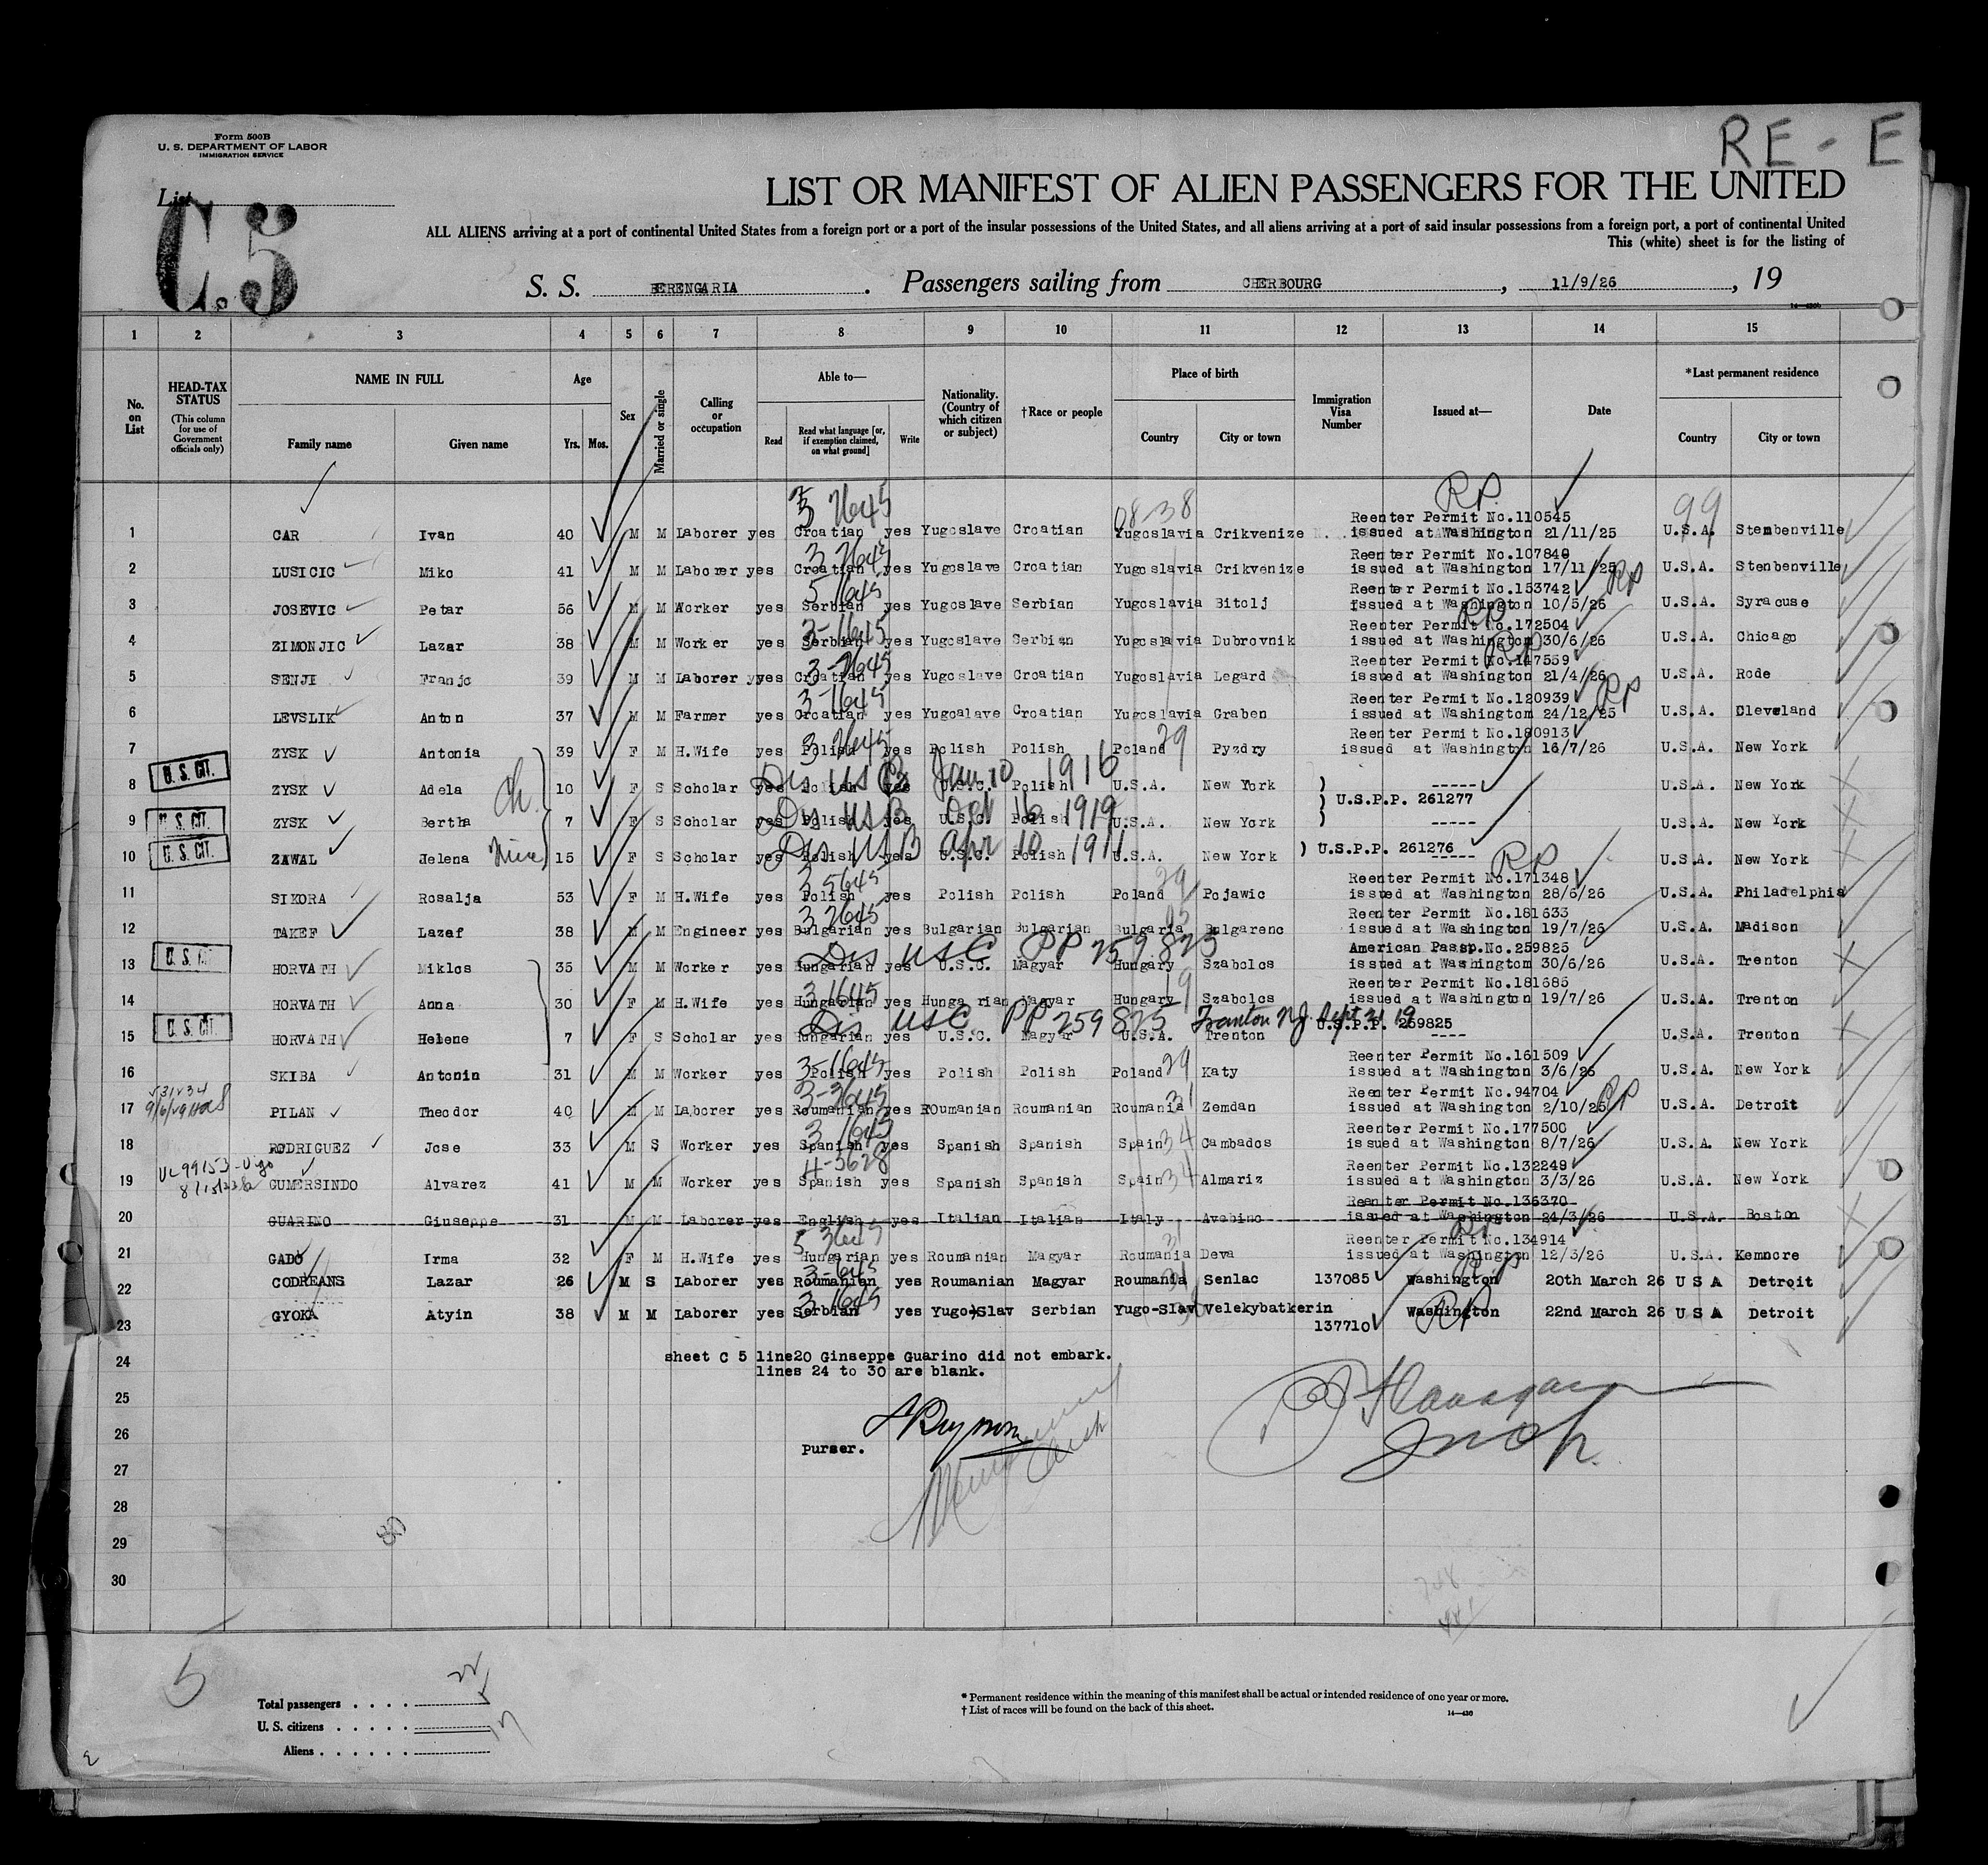 RE - E
Form 500B
U. S. DEPARTMENT OF LABOR
IMMIGRATION SERVICE
List
C.5
LIST OR MANIFEST OF ALIEN PASSENGERS FOR THE UNITED
ALL ALIENS arriving at a port of continental United States from a foreign port or a port of the insular possessions of the United States, and all aliens arriving at a port of said insular possessions from a foreign port, a port of continental United
This (white) sheet is for the listing of
S. S. BERENGARIA. Passengers sailing from CHERBOURG, 11/9/26, 19
1 2 3 4 5 6 7 8 9 10 11 12 13 14 15
No. on List
HEAD-TAX STATUS
(This column for use of Government officials only)
NAME IN FULL
Family name
Given name
Age
Yrs. Mos.
Sex
Married or single
Calling or occupation
Able to—
Read
Read what language [or, if exemption claimed, on what ground]
Write
Nationality. (Country of which citizen or subject)
†Race or people
Place of birth
Country
City or town
Immigration Visa Number
Issued at—
Date
*Last permanent residence
Country
City or town
RP 99
3 2645 08-38
Reenter Permit No.110545
1 CAR Ivan 40 M M Laborer yes Croatian yes Yugoslave Croatian Yugoslavia Crikvenize issued at Washington 21/11/25 U.S.A. Stenbenville
3 2645 Reenter Permit No.107849
2 LUSICIC Miko 41 M M Laborer yes Croatian yes Yugoslave Croatian Yugoslavia Crikvenize issued at Washington 17/11/25 U.S.A. Stenbenville
5 1645 Reenter Permit No.153742 RP
3 JOSEVIC Petar 56 M M Worker yes Serbian yes Yugoslave Serbian Yugoslavia Bitolj issued at Washington 10/5/26 U.S.A. Syracuse
3-1645 Reenter Permit No.172504 RP
4 ZIMONJIC Lazar 38 M M Worker yes Serbian yes Yugoslave Serbian Yugoslavia Dubrovnik issued at Washington 30/6/26 U.S.A. Chicago
3-2645 Reenter Permit No.147559 RP
5 SENJI Franjo 39 M M Laborer yes Croatian yes Yugoslave Croatian Yugoslavia Legard issued at Washington 21/4/26 U.S.A. Rode
3-1645 Reenter Permit No.120939 RP
6 LEVSLIK Anton 37 M M Farmer yes Croatian yes Yugoalave Croatian Yugoslavia Graben issued at Washington 24/12/25 U.S.A. Cleveland
3 2645 29 Reenter Permit No.180913
7 ZYSK Antonia 39 F M H.Wife yes Polish yes Polish Polish Poland Pyzdry issued at Washington 16/7/26 U.S.A. New York
U. S. CIT. Dis USB Jan. 10 1916
8 ZYSK Adela 10 F S Scholar yes Polish yes U.S.C. Polish U.S.A. New York ) ----- U.S.A. New York
Ch. ) U.S.P.P. 261277
U. S. CIT. Dis USB Oct 16 1919
9 ZYSK Bertha 7 F S Scholar yes Polish yes U.S.C. Polish U.S.A. New York ) ----- U.S.A. New York
U. S. CIT. Niece Dis USB Apr 10 1911 ) U.S.P.P. 261276
10 ZAWAL Jelena 15 F S Scholar yes Polish yes U.S.C. Polish U.S.A. New York ----- U.S.A. New York
3 5645 29 Reenter Permit No.171348 RP
11 SIKORA Rosalja 53 F M H.Wife yes Polish yes Polish Polish Poland Pojawic issued at Washington 28/6/26 U.S.A. Philadelphia
3 2645 05 Reenter Permit No.181633
12 TAKEF Lazef 38 M M Engineer yes Bulgarian yes Bulgarian Bulgarian Bulgaria Bulgarenc issued at Washington 19/7/26 U.S.A. Madison
Dis USC PP 259825 American Passp.No.259825
13 HORVATH Miklos 35 M M Worker yes Hungarian yes U.S.C. Magyar Hungary Szabolcs issued at Washington 30/6/26 U.S.A. Trenton
3 1645 19 Reenter Permit No.181685
14 HORVATH Anna 30 F M H.Wife yes Hungarian yes Hungarian Magyar Hungary Szabolcs issued at Washington 19/7/26 U.S.A. Trenton
U. S. CIT. Dis USC PP 259825 Trenton NJ Sept 21 19 U.S.P.P. 259825
15 HORVATH Helene 7 F S Scholar yes Hungarian yes U.S.C. Magyar U.S.A. Trenton ---- U.S.A. Trenton
3-1645 29 Reenter Permit No.161509
16 SKIBA Antonin 31 M M Worker yes Polish yes Polish Polish Poland Katy issued at Washington 3/6/26 U.S.A. New York
3-3645 31 Reenter Permit No.94704 RP
17 PILAN Theodor 40 M M Laborer yes Roumanian yes ROumanian Roumanian Roumania Zemdan issued at Washington 2/10/25 U.S.A. Detroit
3 1645 34 Reenter Permit No.177500
18 RODRIGUEZ Jose 33 M S Worker yes Spanish yes Spanish Spanish Spain Cambados issued at Washington 8/7/26 U.S.A. New York
4-3628 34 Reenter Permit No.132249
19 GUMERSINDO Alvarez 41 M M Worker yes Spanish yes Spanish Spanish Spain Almariz issued at Washington 3/3/26 U.S.A. New York
Reenter Permit No.136370
20 GUARINO Giuseppe 31 M M Laborer yes English yes Italian Italian Italy Avebino issued at Washington 24/3/26 U.S.A. Boston
5 3645 31 Reenter Permit No.134914 RP
21 GADO Irma 32 F M H.Wife yes Hungarian yes Roumanian Magyar Roumania Deva issued at Washington 12/3/26 U.S.A. Kemnore
3-1645 31 RP
22 CODREANS Lazar 26 M S Laborer yes Roumanian yes Roumanian Magyar Roumania Senlac 137085 Washington 20th March 26 U S A Detroit
3 1645 RP
23 GYOKA Atyin 38 M M Laborer yes Serbian yes Yugo-Slav Serbian Yugo-Slav Velekybatkerin 137710 Washington 22nd March 26 U S A Detroit
24 sheet C 5 line20 Ginseppe Guarino did not embark.
lines 24 to 30 are blank.
25
26 Purser.
27
28
29
30
5
Total passengers . . . . 22
U. S. citizens . . . . .
Aliens . . . . . .
* Permanent residence within the meaning of this manifest shall be actual or intended residence of one year or more.
† List of races will be found on the back of this sheet.
14—430